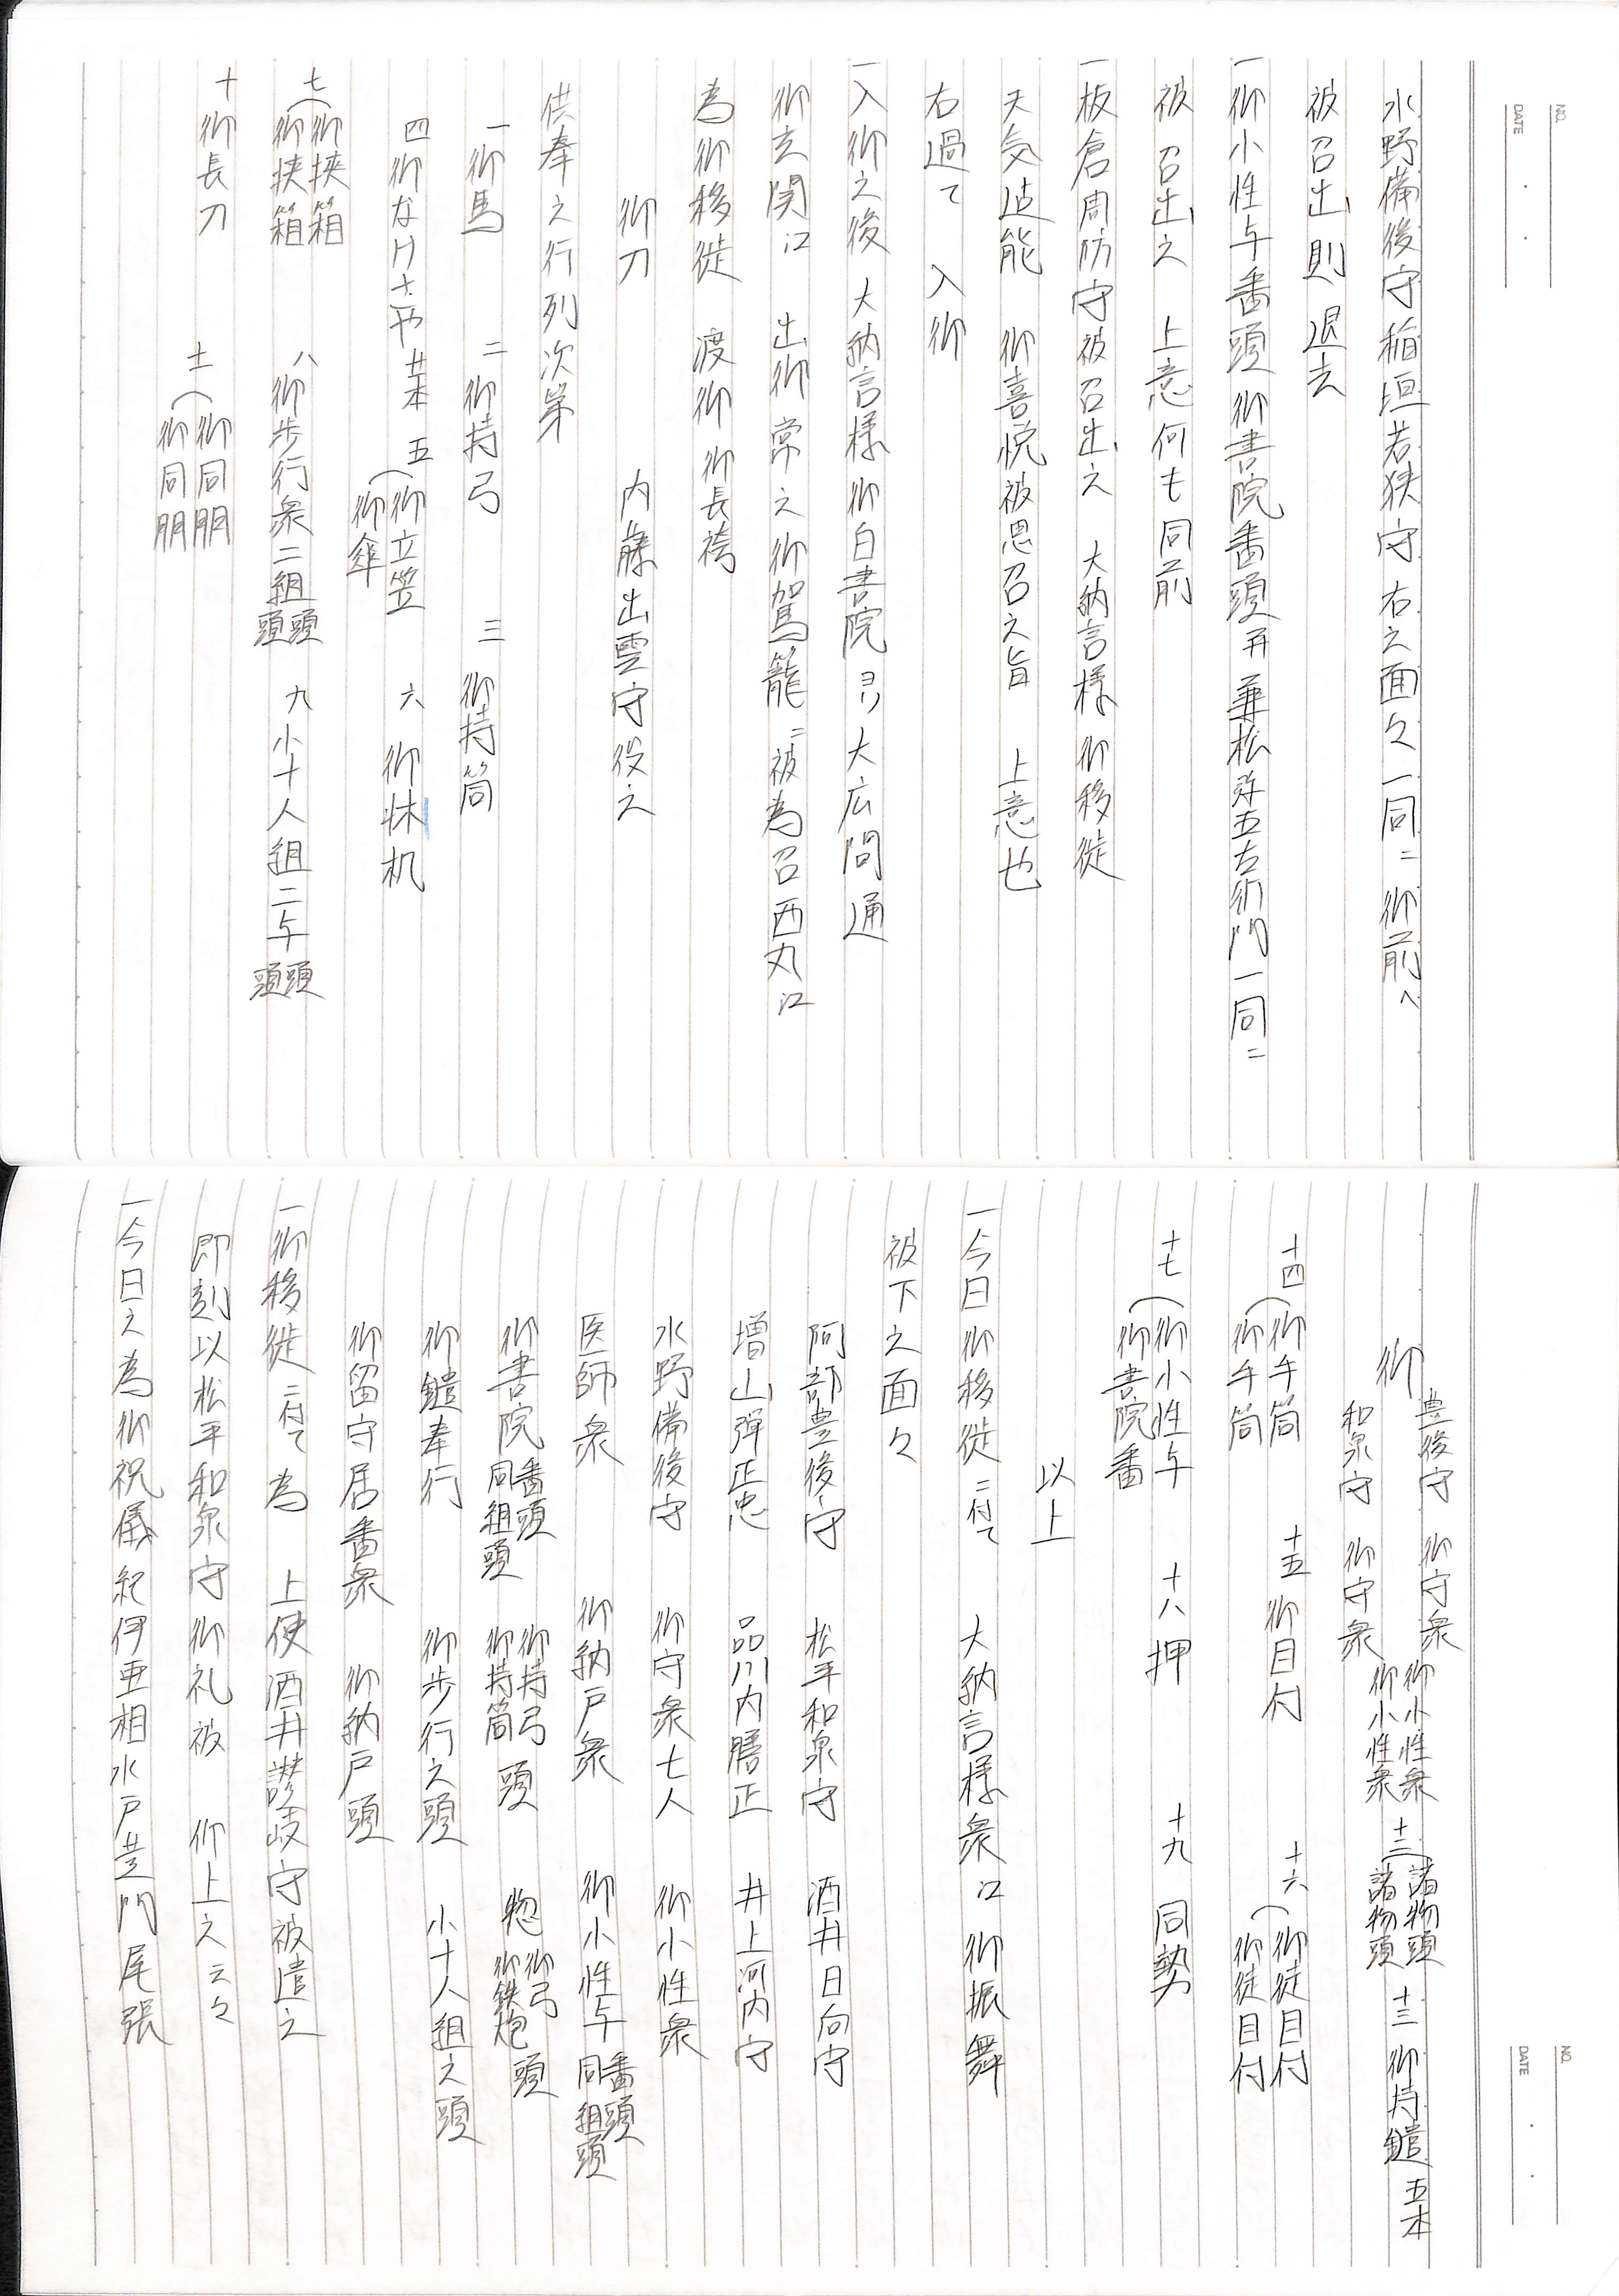 水野備後守 稲垣若狭守 右之面々一同ニ御前へ
被召出則退去
一御小性与番頭 御書院番頭并兼松弥五左衛門一同ニ
被 召出之 上意何も同前
一板倉周防守被召出之 大納言様 御移徙
天気 能 御喜悦被思召之旨 上意也
右過て 入御
一入御之後 大納言様御白書院ヨリ大広間通
御玄関江 出御常之御駕籠ニ被為召西丸江
為御移徙 渡御 御長袴
御刀 内藤出雲守役之
供奉之行列次第
一御馬 二御持弓 三御持筒
四御なけさや廿本 五(御立笠 御傘 六 御床机
七(御挟箱 御挟箱 八御歩行衆二組頭頭 九小十人組二与頭頭
十御長刀 十一(御同朋 御同朋
御 豊後守 御守衆 御小性衆 十二(諸物頭 十三 御持鑓五本
和泉守 御守衆 御小性衆 諸物頭
十四(御手筒 御手筒 十五御目付 十六(御徒目付 御徒目付
十七(御小性与 御書院番 十八押 十九 同勢
以上
一今日御移徙ニ付て 大納言様衆江御振舞
被下之面々
阿部豊後守 松平和泉守 酒井日向守
増山弾正忠 品川内膳正 井上河内守
水野備後守 御守衆七人 御小性衆
医師衆 御納戸衆 御小性与番頭同組頭
御書院番頭同組頭 御持弓御持筒頭 惣御弓御鉄炮頭
御鑓奉行 御歩行之頭 小十人組之頭
御留守居番衆 御納戸頭
一御移徙ニ付て 為 上使酒井讃岐守被遣之
即刻以松平和泉守御礼被 仰上之云々
一今日之為御祝儀紀伊亜相水戸黄門尾張